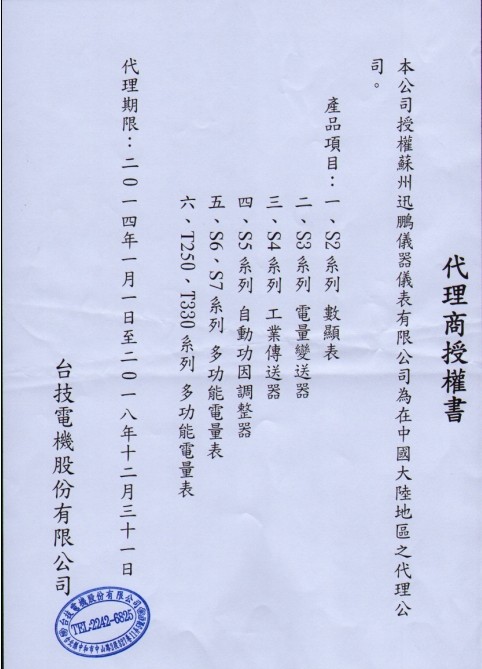 代理商授權書
本公司授權蘇州迅鵬儀器儀表有限公司為在中國大陸地區之代理公
司。
產品項目：一、S2系列 數顯表
二、S3系列 電量變送器
三、S4系列 工業傳送器
四、S5系列 自動功因調整器
五、S6、S7系列 多功能電量表
六、T250、T330系列 多功能電量表
代理期限：二０一四年一月一日至二０一八年十二月三十一日
台技電機股份有限公司
台技電機股份有限公司
TEL:2242-6825